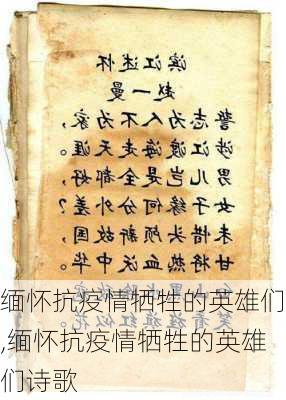 滨江述怀
赵一曼
誓志为人不为家，
涉江渡海走天涯。
男儿岂是全都好，
女子缘何分外差？
未惜头颅新故国，
甘将热血沃中华。
笑看旌旗红似花。
缅怀抗疫情牺牲的英雄们
,缅怀抗疫情牺牲的英雄
们诗歌